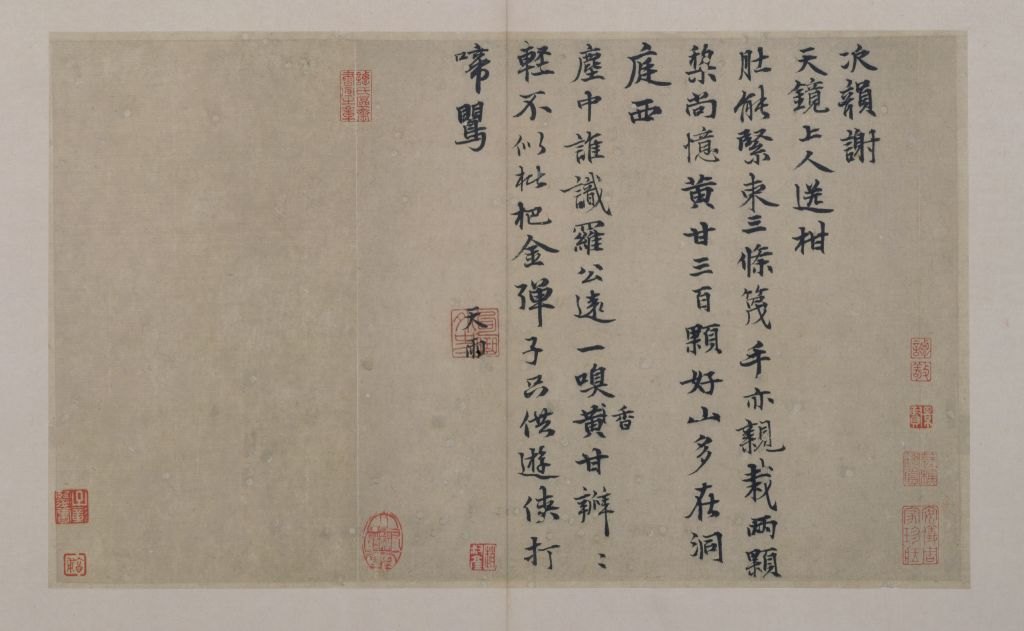 次韻謝
天鏡上人送柑
肚能緊束三條篾手亦親栽兩顆
棃尚憶黄甘三百顆好山多在洞
庭西
塵中誰識羅公遠一嗅黄甘瓣〻
香
軽不似枇杷金弾子只供遊侠打
啼鸎
天雨
安儀周家珍藏